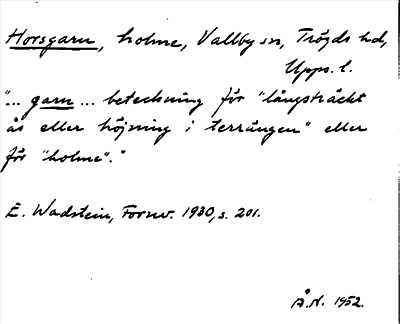 Horsgarn, holme, Vallby sn, Trögds hd,
Upps. l.
"... garn ... beteckning för "långsträckt
ås eller höjning i terrängen" eller
för "holme"."
E. Wadstein, Fornv. 1930, s. 201.
Å.N. 1952.